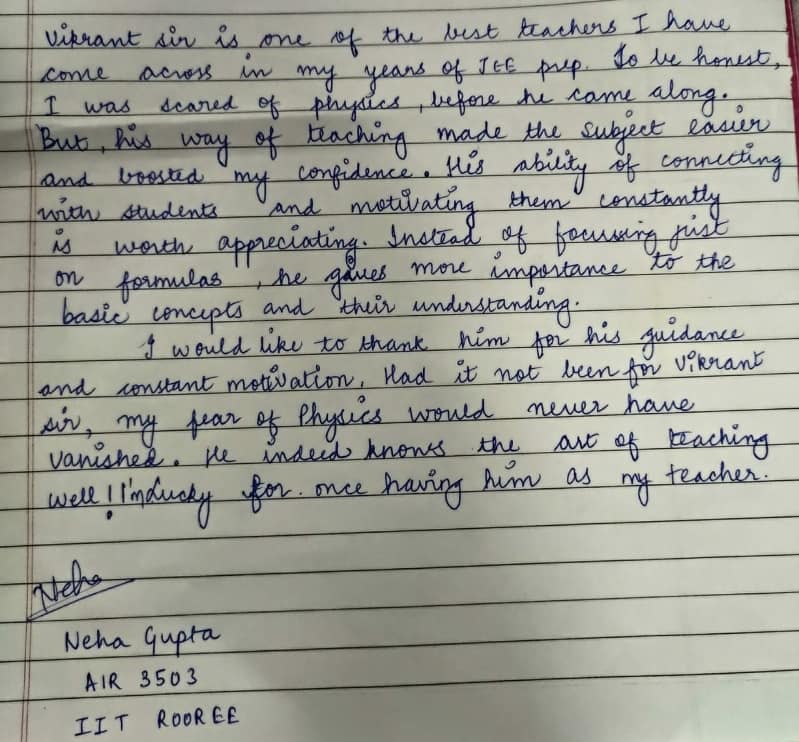 Vikrant sir is one of the best teachers I have
come across in my years of JEE prep. To be honest,
I was scared of physics, before he came along.
But, his way of teaching made the subject easier
and boosted my confidence. His ability of connecting
with students and motivating them constantly
is worth appreciating. Instead of focussing just
on formulas, he gives more importance to the
basic concepts and their understanding.
I would like to thank him for his guidance
and constant motivation. Had it not been for Vikrant
sir, my fear of Physics would never have
vanished. He indeed knows the art of teaching
well! I'm lucky for once having him as my teacher.
Neha
Neha Gupta
AIR 3503
IIT ROOREE